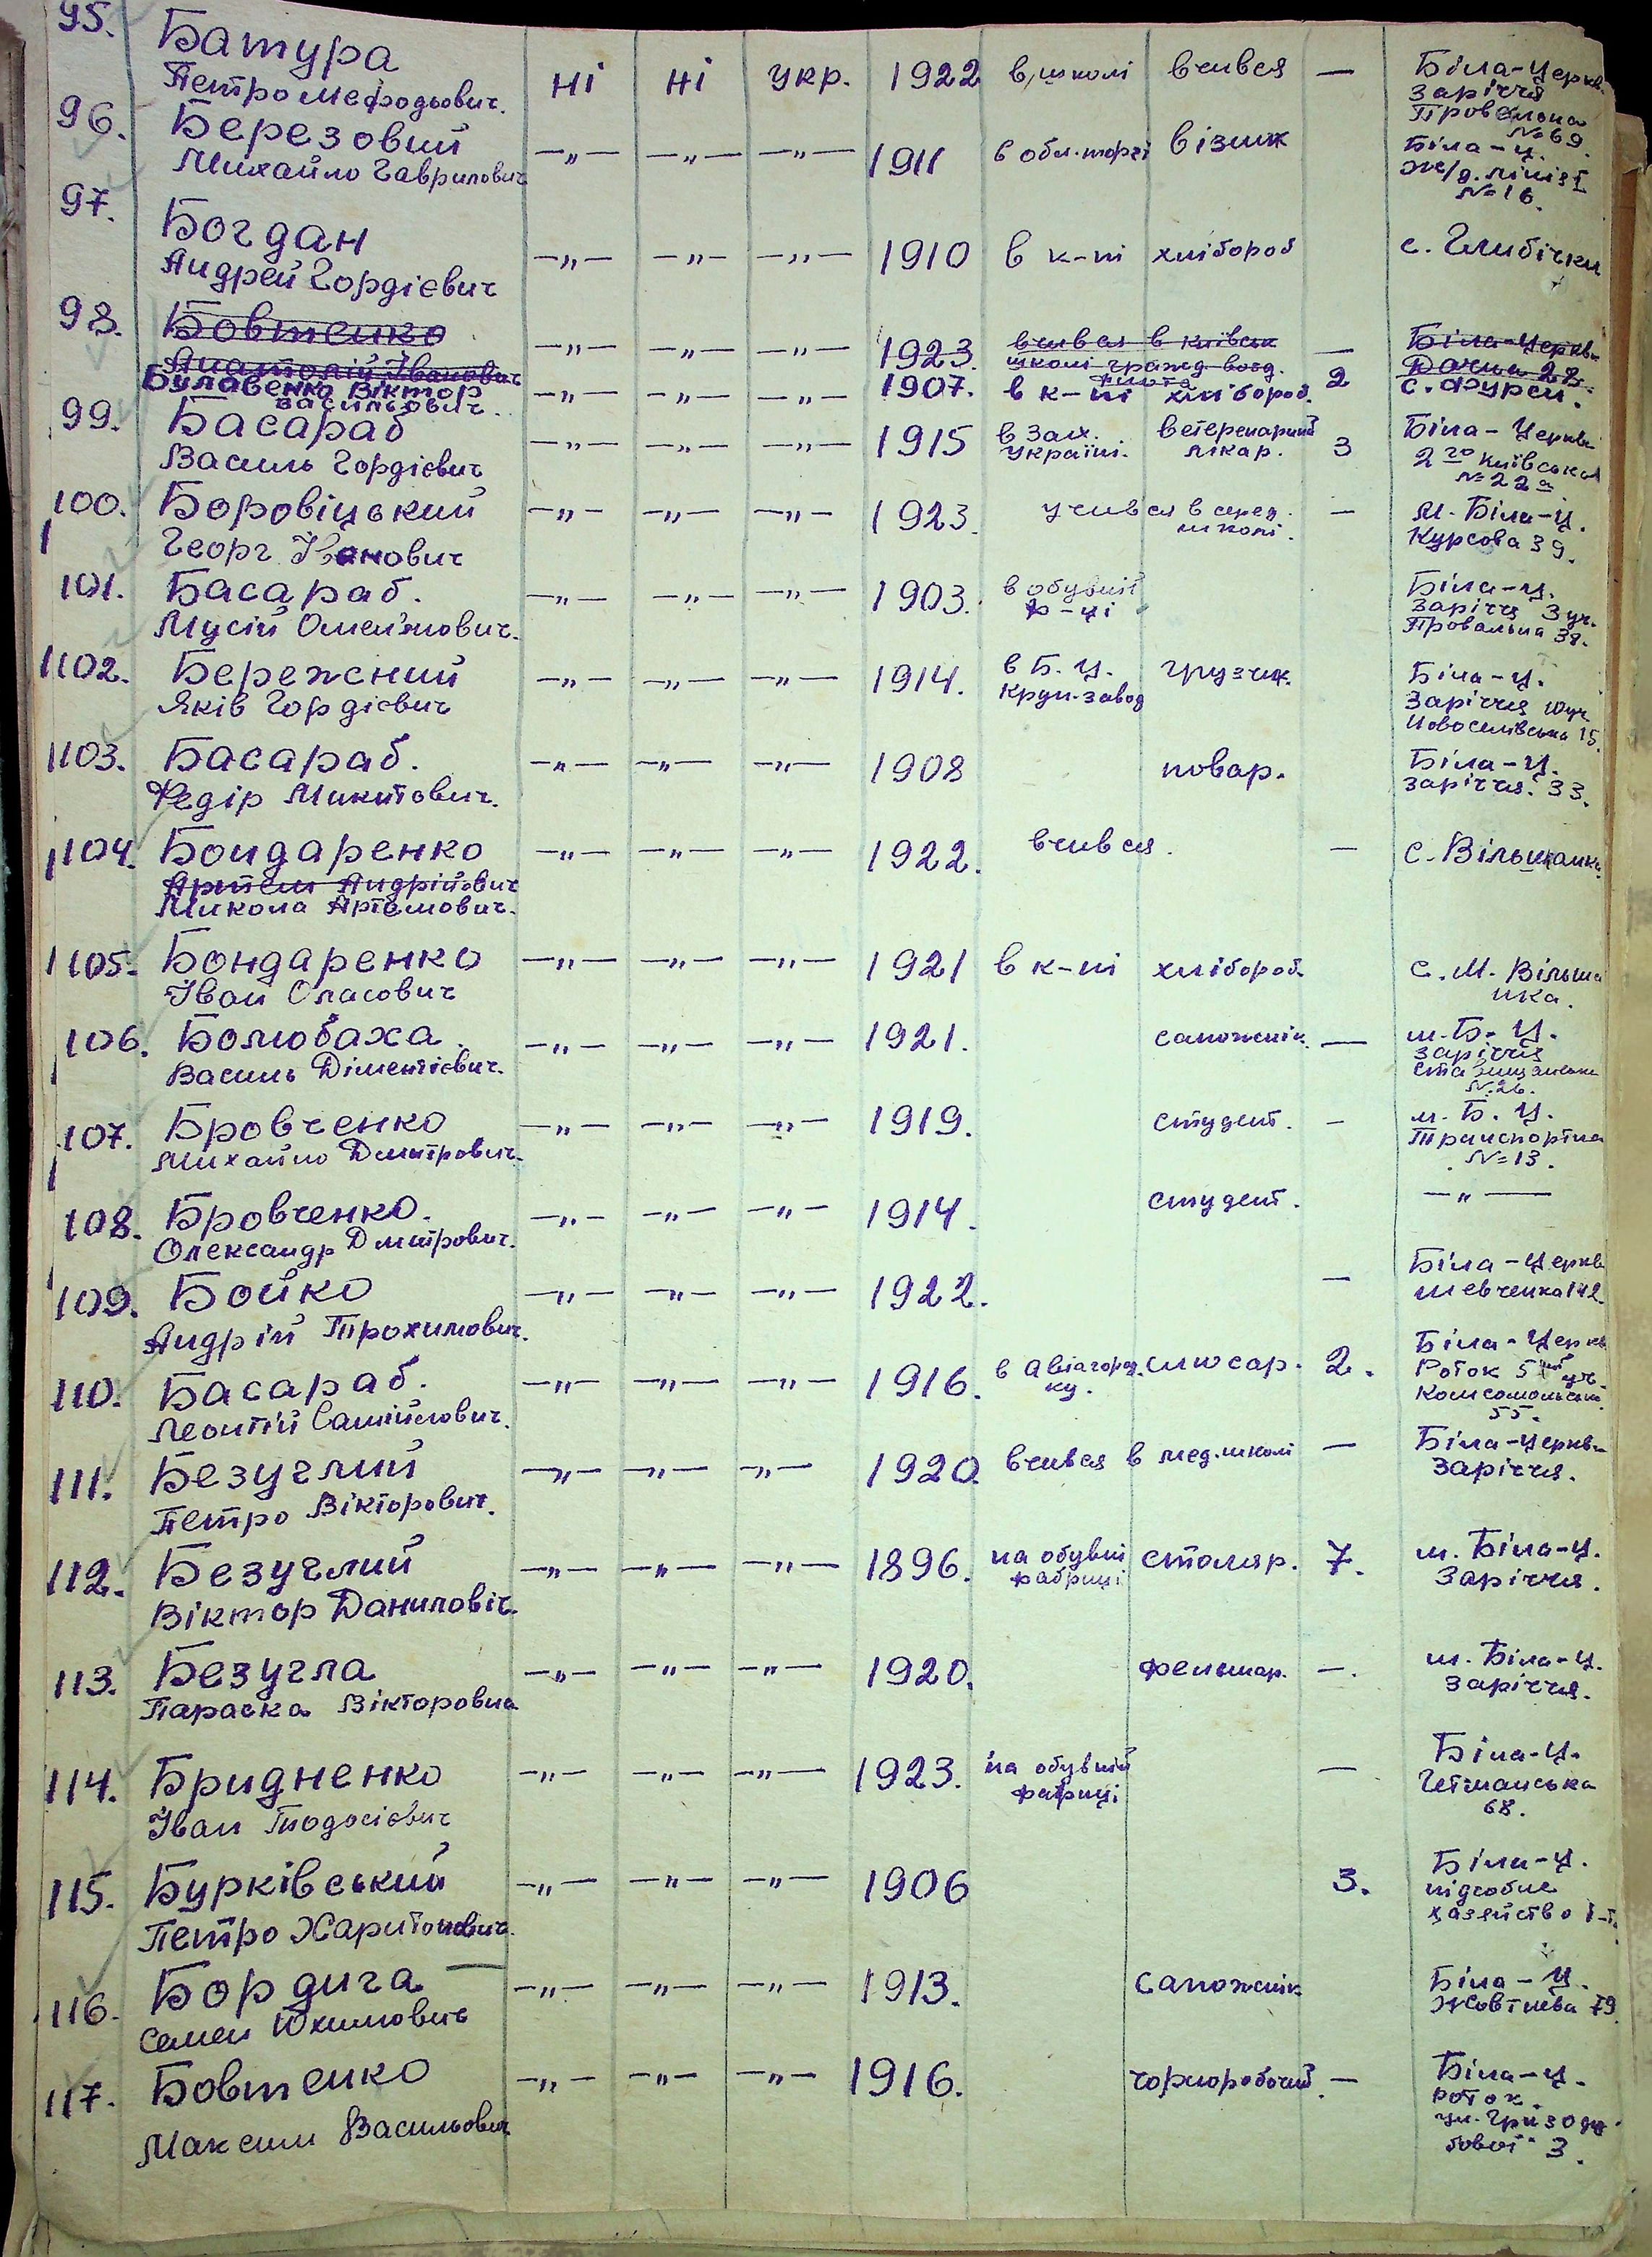 95. Батура ні ні укр. 1922 в школі вчився — Біла-Церкв.
Петро Мефодьович. Заріччя
Провальна
№ 69.
96. Березовий —„— —„— —„— 1911 в обл.торзі візник Біла-Ц.
Михайло Гаврилович ж/д. лінія I
№ 16.
97. Богдан —„— —„— —„— 1910 в к-пі хлібороб с. Глибічки
Андрей Гордієвич
98. Бовтенко —„— —„— —„— 1923. вчився в київськ — Біла-Церква
Анатолій Іванович школі гражд. возд. Дачна 28.
флота
Булавенко Віктор —„— —„— —„— 1907. в к-пі хлібороб. 2 с. Фурси.
Васильович.
99. Басараб —„— —„— —„— 1915 в Зах. ветеренарний 3 Біла-Церква
Василь Гордієвич Україні. лікар. 2 го Київська
№ 22 а
100. Боровіцький —„— —„— —„— 1923. учився в серед. — м. Біла-Ц.
Георг Іванович школі. Курсова 39.
101. Басараб. —„— —„— —„— 1903. в обувній Біла-Ц.
Мусій Омел'янович. ф-ці Заріччя 3 уч.
Провальна 38.
102. Бережний —„— —„— —„— 1914. в Б.Ц. грузчик. Біла-Ц.
Яків Гордієвич круп.завод Заріччя 10 уч
Новоселівська 15.
103. Басараб. —„— —„— —„— 1908 повар. Біла-Ц.
Федір Микитович. Заріччя. 33.
104. Бондаренко —„— —„— —„— 1922. вчився. — с. Вільшанка
Артем Андрійович
Микола Артемович.
105. Бондаренко —„— —„— —„— 1921 в к-пі хлібороб. с. М. Вільша
Іван Спасович нка.
106. Болюбаха. —„— —„— —„— 1921. сапожнік. — м. Б. Ц.
Василь Діментієвич. Заріччя
Ставищанська
№ 26.
107. Бровченко —„— —„— —„— 1919. студент. — м. Б. Ц.
Михайло Дмитрович. Транспортна
№ 13.
108. Бровченко. —„— —„— —„— 1914. студент. —„—
Олександр Дмитрович.
109. Бойко —„— —„— —„— 1922. — Біла-Церкв
Андрій Трохимович. Шевченка 142.
110. Басараб. —„— —„— —„— 1916. в Авіагород. слюсар. 2. Біла-Церкв
Леонтій Самійлович. ку. Роток 5 уч.
Комсомольська
55.
111. Безуглий —„— —„— —„— 1920. вчився в мед.школі — Біла-Церква
Петро Вікторович. Заріччя.
112. Безуглий —„— —„— —„— 1896. на обувні столяр. 7. м. Біла-Ц.
Віктор Даниловіч. фабриці Заріччя.
113. Безугла —„— —„— —„— 1920. фельшар. —. м. Біла-Ц.
Параска Вікторовна Заріччя.
114. Бридненко —„— —„— —„— 1923. на обувній — Біла-Ц.
Іван Тодосієвич фабриці Гетманська
68.
115. Бурківський —„— —„— —„— 1906 3. Біла-Ц.
Петро Харитонович. підсобне
хазяйство
116. Бордига —„— —„— —„— 1913. сапожнік Біла-Ц.
Семен Юхимович Жовтнева 79.
117. Бовтенко —„— —„— —„— 1916. чорноробочий. — Біла-Ц.
Максим Васильович роток.
ул. Гризоду
бової 3.